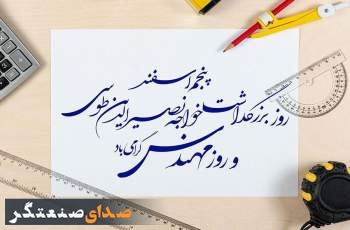 پنجم اسفند
روز بزرگداشت خواجه نصیرالدین طوسی
و روز مهندس گرامی باد
صدای صنعتگر